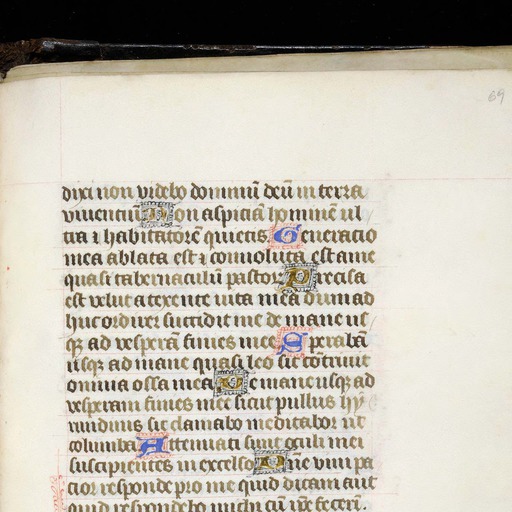 69
dixi non videbo dominū deū in terra
viuentiū Non aspiciā hominē ul
tra ⁊ habitatorē quietis Generatio
mea ablata est ⁊ conuoluta est a me
quasi tabernaculū pastorū Precisa
est velut a texente uita mea dum ad
huc ordirer succidit me de mane us
qȝ ad vesperā finies me Sperabā
usqȝ ad mane quasi leo sic cōtriuit
omnia ossa mea De mane usqȝ ad
vesperam finies me sicut pullus hy
rundinis sic clamabo meditabor ut
columba Attenuati sunt oculi mei
suscipientes in excelso Dn̄e vim pa
cior responde pro me quid dicam aut
quid respondebo michi cū ip̄e fecerī.